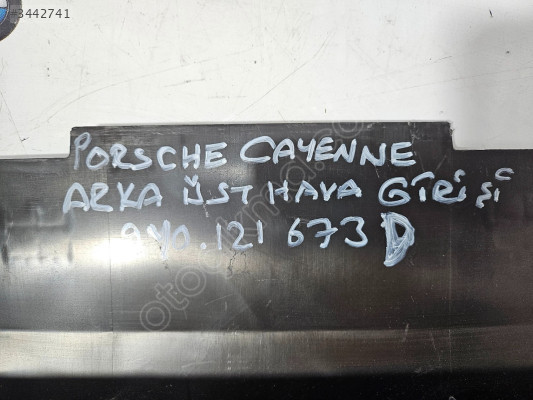 #3442741
PORSCHE CAYENNE
ARKA ÜST HAVA GİRİŞİ
9Y0.121 673 D